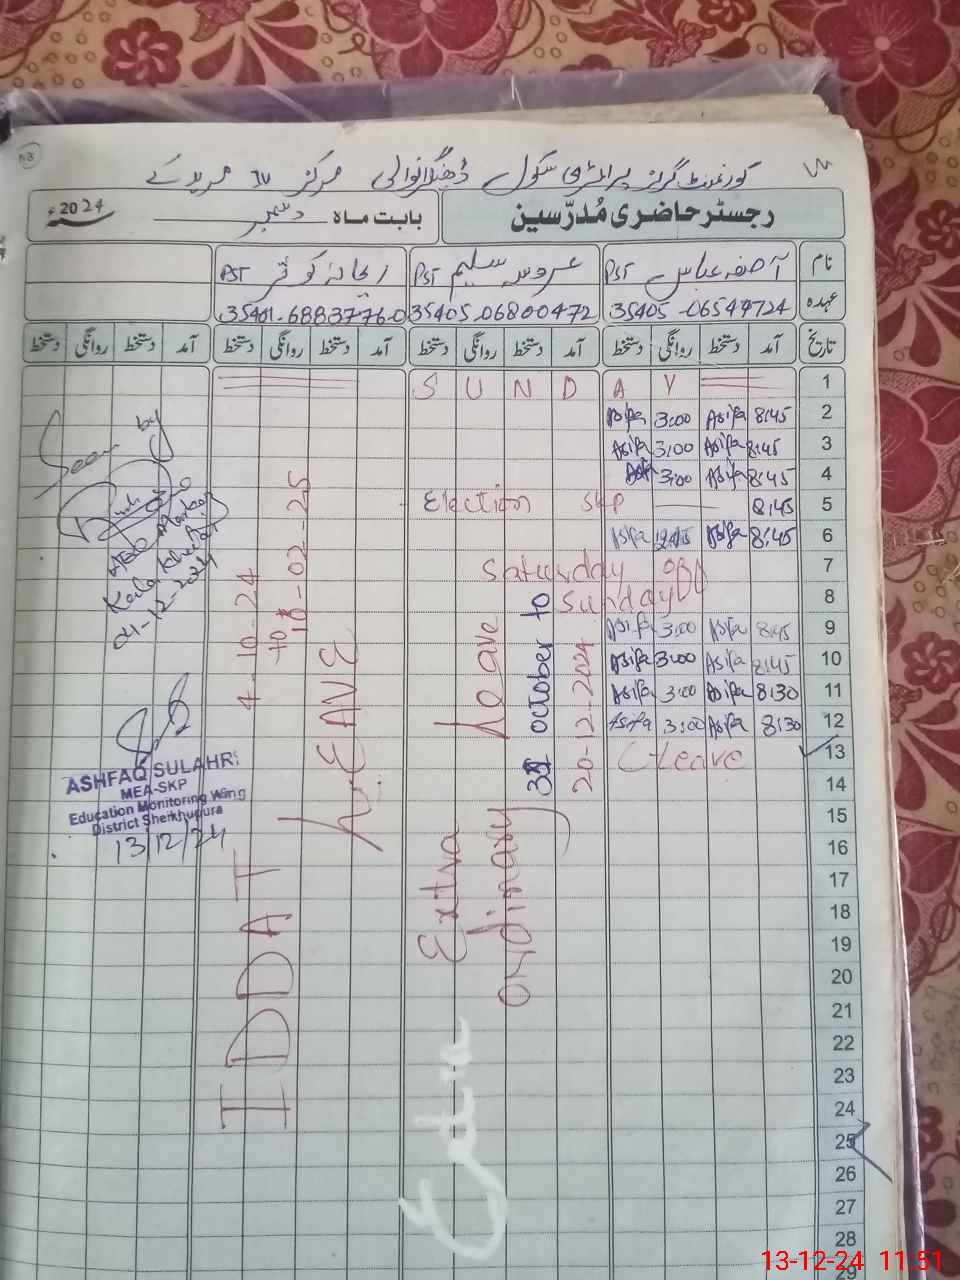 گورنمنٹ گرلز پرائمری سکول ڈھینگرانوالی مرکز مریدکے
رجسٹر حاضری مُدرّسین
بابت ماہ دسمبر 2024ء
نام آصفہ عباس PST عروسہ سلیم PST ریحانہ کوثر PST
عہدہ 35405-06544724 35405-06800472 35401-6883776-0
تاریخ آمد دستخط روانگی دستخط آمد دستخط روانگی دستخط آمد دستخط روانگی دستخط آمد دستخط روانگی دستخط
1 SUNDAY
2 8:45 Asifa 3:00 Asifa
3 8:45 Asifa 3:00 Asifa
4 8:45 Asifa 3:00
5 8:45 Election SKP
6 8:45 Asifa 12:15 Asifa
7 Saturday off
8 Sunday
9 8:45 Asifa 3:00 Asifa
10 8:45 Asifa 3:00 Asifa
11 8:30 Asifa 3:00 Asifa
12 8:30 Asifa 3:00 Asifa
13 C-leave
14
15
16
17
18
19
20
21
22
23
24
25
26
27
28
29
Extra ordinary Leave
31 october to
20-12-2024
Extra
IDDAT LEAVE
4-10-24
to
10-02-25
Seen by
AEO Markaz
04-12-2024
ASHFAQ SULAHRI
MEA-SKP
Education Monitoring Wing
District Sheikhupura
13/12/24
13-12-24 11:51